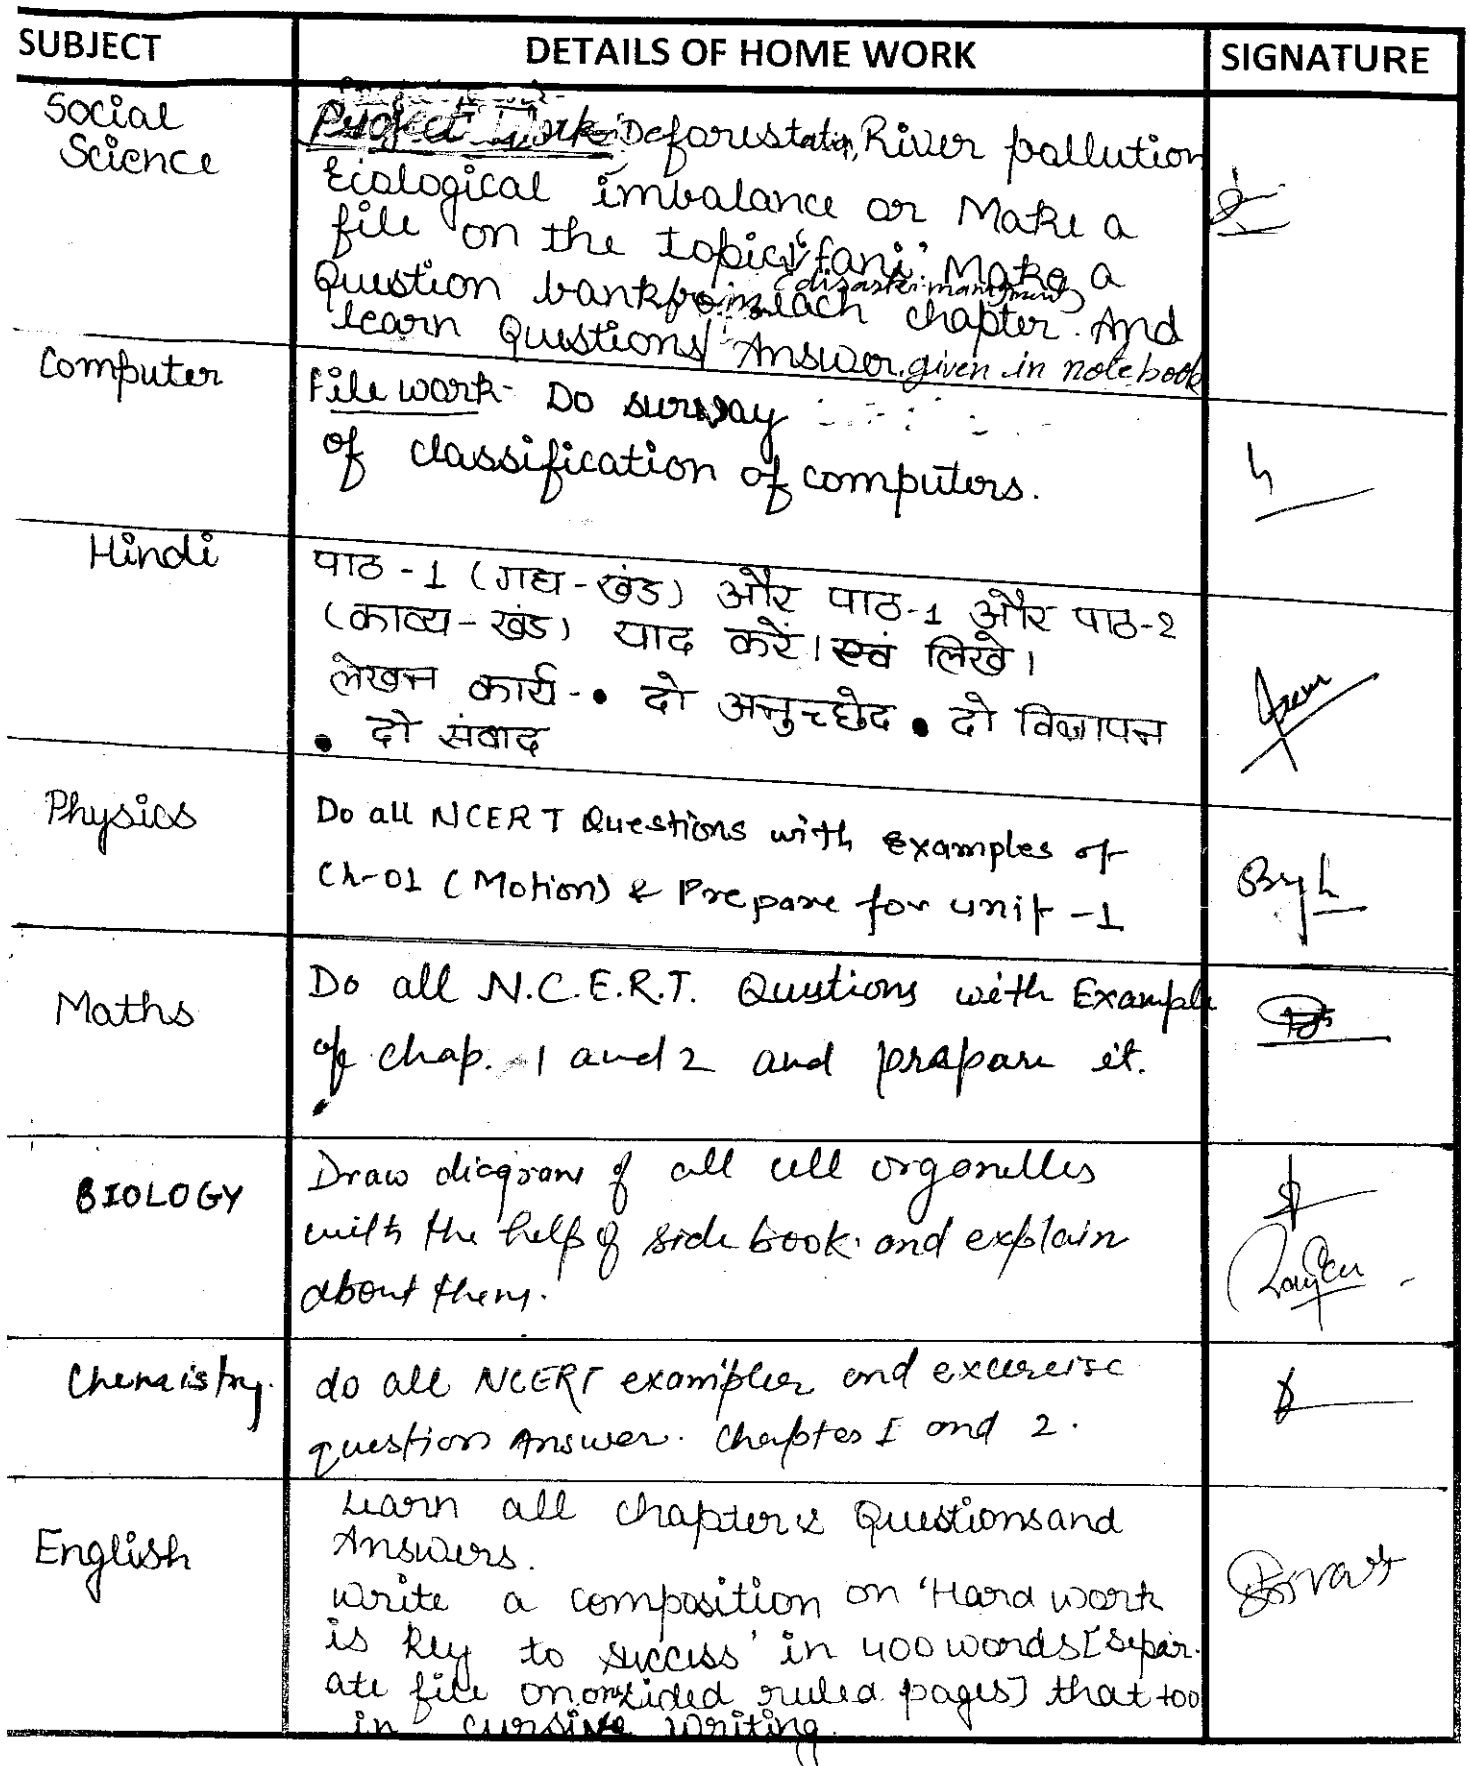 SUBJECT DETAILS OF HOME WORK SIGNATURE
Social
Science
Project Work:- Deforestatin, River pollution
Ecological imbalance or Make a
file on the topic 'fani' Make a
(disaster managment)
Question bank from each chapter. And
learn Questions/Answer given in notebook
Computer
File work- Do survay
of classification of computers.
Hindi
पाठ -1 (गद्य-खंड) और पाठ-1 और पाठ-2
(काव्य-खंड) याद करें। एवं लिखे।
लेखन कार्य-• दो अनुच्छेद • दो विज्ञापन
• दो संवाद
Physics
Do all NCERT Questions with examples of
Ch-01 (Motion) & Prepare for unit -1
Maths
Do all N.C.E.R.T. Questions with Example
of chap. -1 and 2 and prepare it.
BIOLOGY
Draw diagram of all cell organelles
with the help of side book. and explain
about them.
Chemistry.
do all NCERT exampler and excereise
question Answer. Chapter I and 2.
English
Learn all chapter's Questions and
Answers.
Write a composition on 'Hard work
is key to success' in 400 words [separ-
ate file on one sided ruled pages] that too
in cursive writing.